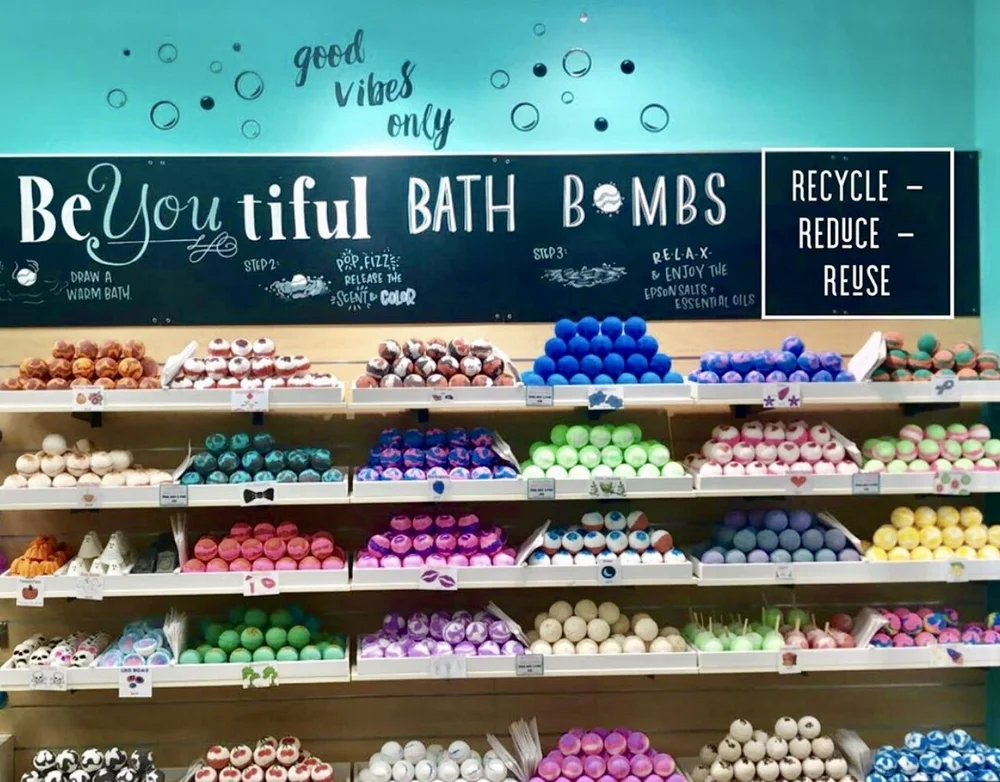 good
vibes
only
BeYoutiful BATH BOMBS
DRAW A
WARM BATH.
STEP 2:
POP, FIZZ,
RELEASE THE
SCENT & COLOR
STEP 3:
R·E·L·A·X·
& ENJOY THE
EPSON SALTS +
ESSENTIAL OILS
RECYCLE –
REDUCE –
REUSE